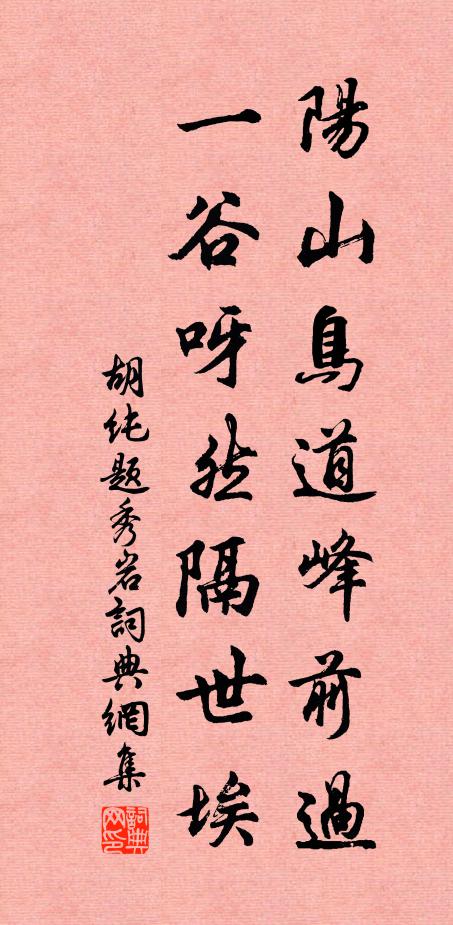 陽山鳥道峰前過
一谷呀然隔世埃
胡純題秀岩詞典網集
詞典网印